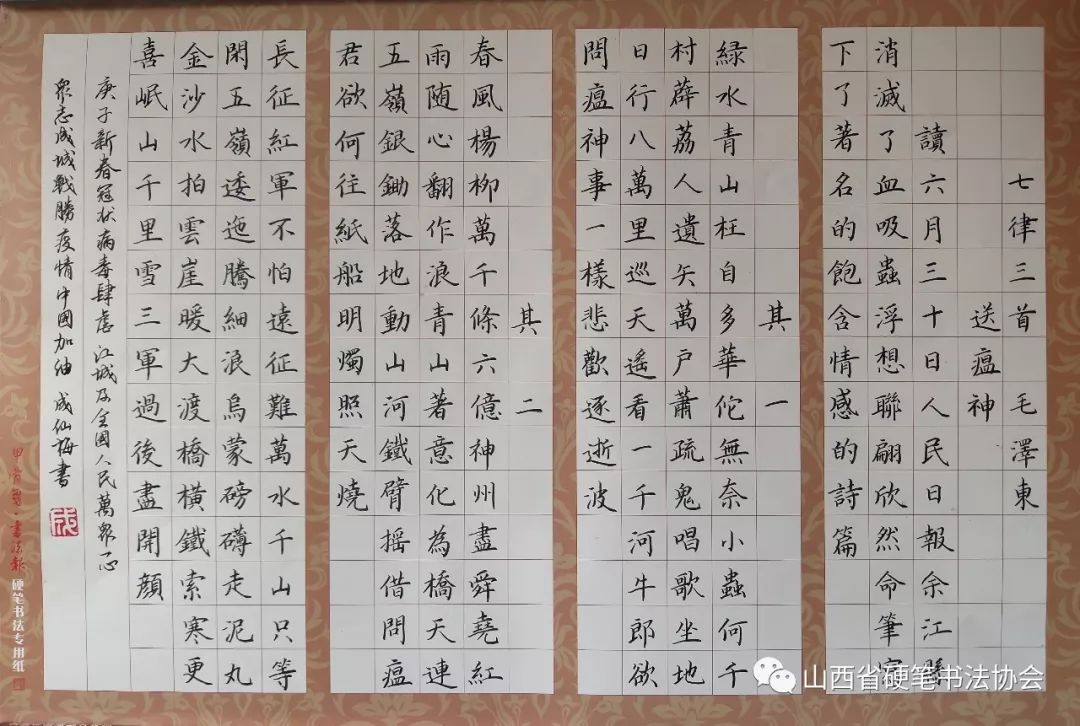 七律三首 毛澤東
送瘟神
讀六月三十日人民日報余江縣
消滅了血吸蟲浮想聯翩欣然命筆
下了著名的飽含情感的詩篇
其一
綠水青山枉自多華佗無奈小蟲何千
村薜荔人遺矢萬戶蕭疏鬼唱歌坐地
日行八萬里巡天遙看一千河牛郎欲
問瘟神事一樣悲歡逐逝波
其二
春風楊柳萬千條六億神州盡舜堯紅
雨隨心翻作浪青山著意化為橋天連
五嶺銀鋤落地動山河鐵臂搖借問瘟
君欲何往紙船明燭照天燒
長征紅軍不怕遠征難萬水千山只等
閑五嶺逶迤騰細浪烏蒙磅礴走泥丸
金沙水拍雲崖暖大渡橋橫鐵索寒更
喜岷山千里雪三軍過後盡開顏
庚子新春冠狀病毒肆虐 江城及全國人民萬眾一心
眾志成城戰勝疫情中國加油 成仙梅書
成
書法報 硬笔书法专用纸
山西省硬笔书法协会